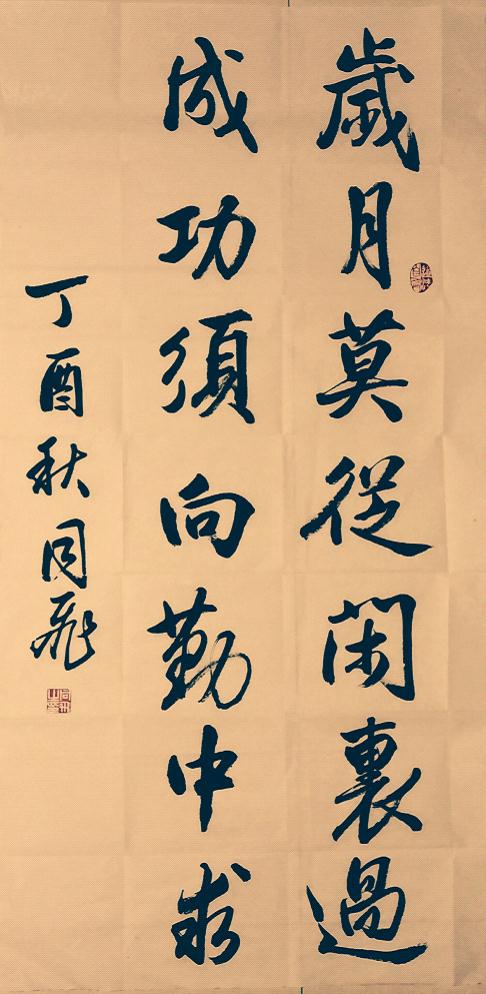 歲月莫從閑裏過
成功須向勤中求
丁酉秋同飛